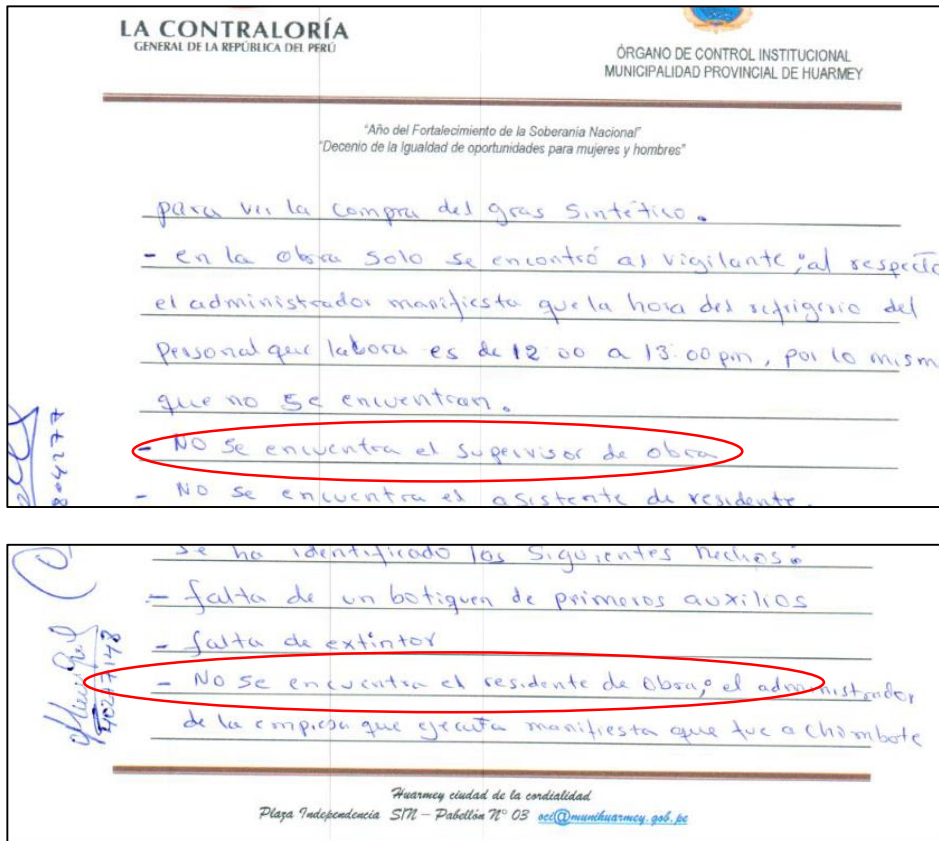 LA CONTRALORÍA
GENERAL DE LA REPÚBLICA DEL PERÚ
ÓRGANO DE CONTROL INSTITUCIONAL
MUNICIPALIDAD PROVINCIAL DE HUARMEY
"Año del Fortalecimiento de la Soberanía Nacional"
"Decenio de la Igualdad de oportunidades para mujeres y hombres"
para ver la compra del gras sintético.
- en la obra solo se encontró al vigilante, al respecto
el administrador manifiesta que la hora del refrigerio del
personal que labora es de 12:00 a 13:00 pm, por lo mism
que no se encuentran.
- NO se encuentra el supervisor de obra
- NO se encuentra el asistente de residente.
se ha identificado los siguientes hechos:
- falta de un botiquen de primeros auxilios
- falta de extintor
- No se encuentra el residente de obra, el administrador
de la empresa que ejecuta manifiesta que fue a chimbote
Huarmey ciudad de la cordialidad
Plaza Independencia S/N – Pabellón N° 03 oci@munihuarmey.gob.pe